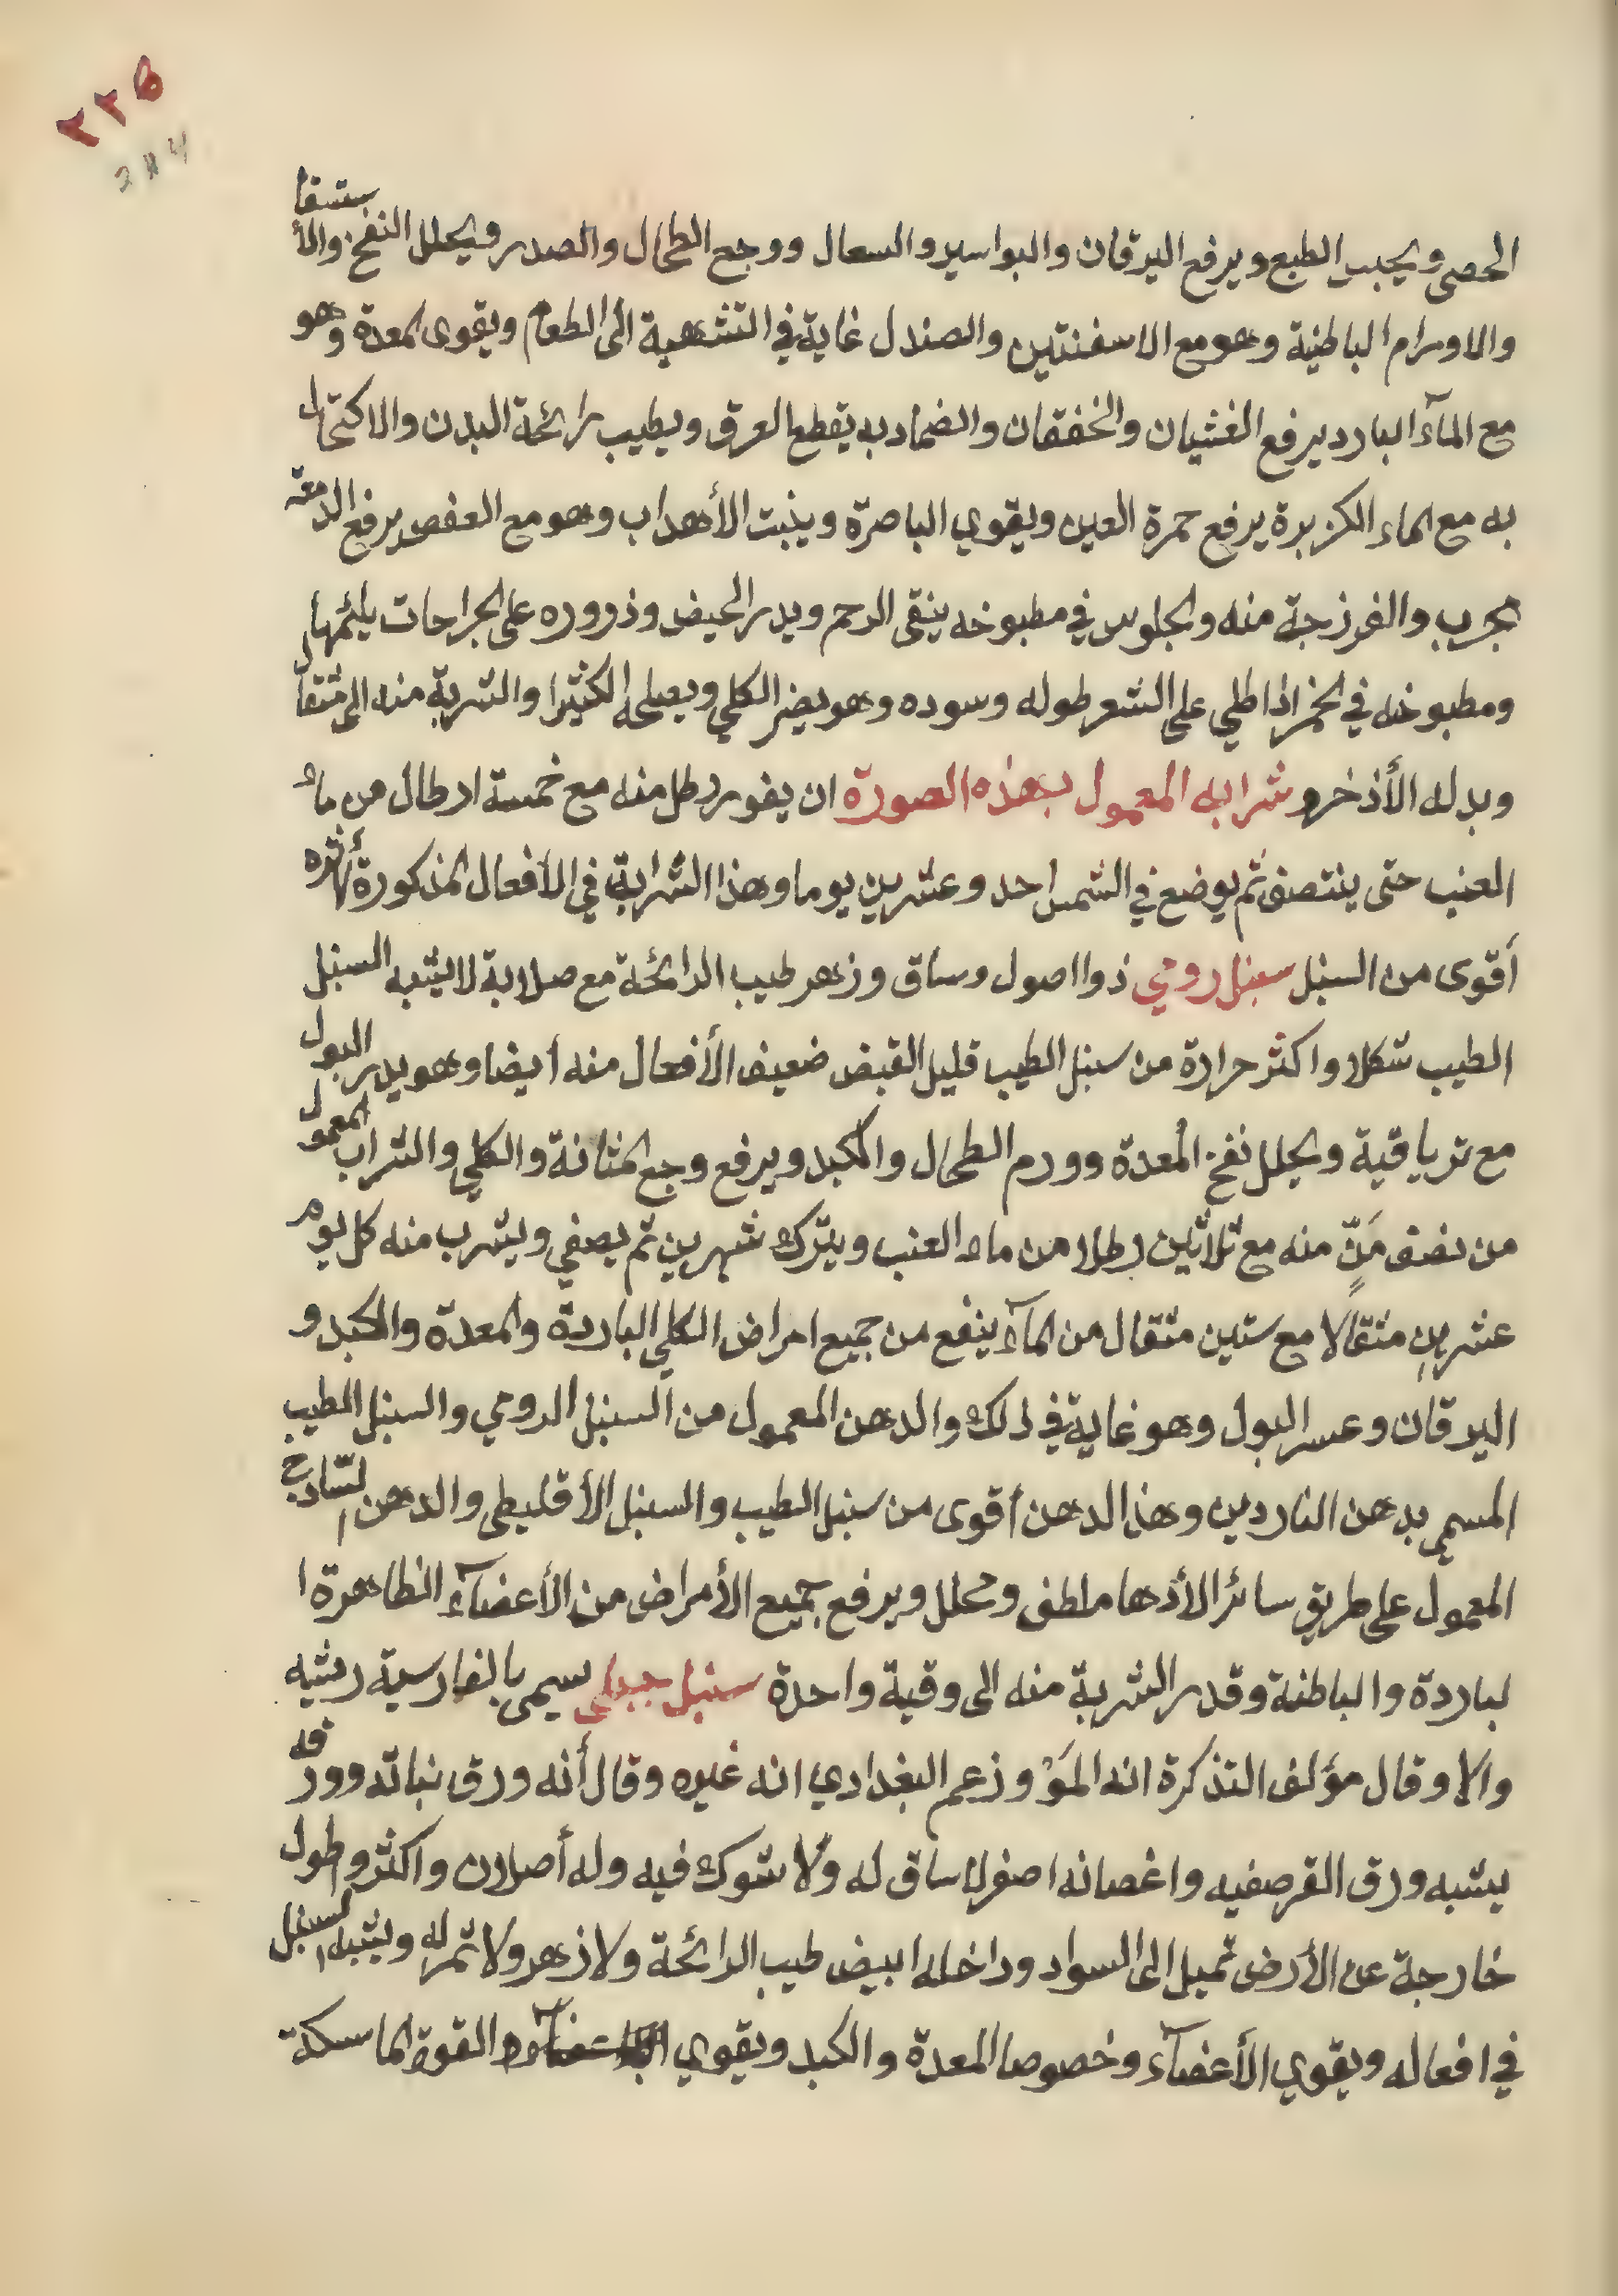 ٢٢٥
الحصى ويحبس الطبع ويرفع اليرقان والبواسير والسعال ووجع الطحال والصدر ويحلل النفخ والأستسقا
والاورام الباطنية وهو مع الاسفنتين والصندل غاية في التشهية الى الطعام ويقوى المعدة وهو
مع المآء البارد يرفع الغثيان والخفقان والضماد به يقطع العرق ويطيب رائحة البدن والاكتحال
به مع الماء الكزبرة يرفع حمرة العين ويقوي الباصرة وينبت الأهداب وهو مع العفص يرفع الدمعة
مجرب والفرزجة منه والجلوس في مطبوخه ينقى الرحم ويدر الحيض وذروره على الجراحات يلئمها
ومطبوخه في الخمر اذا طلي على الشعر طوله وسوده وهو يضر الكلي ويصلحه الكثيرا والشربة منه الى مثقال
وبدله الأذخر شرابه المعمول بهذه الصورة ان يفور رطل منه مع خمسة ارطال من ماء
العنب حتى ينتصف ثم يوضع في الشمس احد وعشرين يوما وهذا الشرابة في الأفعال المذكورة أثره
أقوى من السنبل سنبل رومي ذوا اصول وساق وزهر طيب الرائحة مع صلابة لا يشبه السنبل
الطيب شكلا واكثر حرارة من سنبل الطيب قليل القبض ضعيف الأفعال منه أيضا وهو يدر البول
مع ترياقية ويحلل نفخ المعدة وورم الطحال والكبد ويرفع وجع المثانة والكلي والشراب المعمول
من نصف مَنٍّ منه مع ثلاثين رطلا من ماء العنب ويترك شهرين ثم يصفي ويشرب منه كل يوم
عشرين مثقالا مع ستين مثقال من المآء ينفع من جميع امراض الكلي الباردة والمعدة والكبد و
اليرقان وعسر البول وهو غاية في ذلك والدهن المعمول من السنبل الرومي والسنبل الطيب
المسمى بدهن الناردين وهذا الدهن أقوى من سنبل الطيب والسنبل الأقليطى والدهن السّاذج
المعمول على طريق سائر الأدهان ملطف ومحلل ويرفع جميع الأمراض من الأعضآء الظاهرة ا
لباردة والباطنة وقدر الشربة منه الى وقية واحدة سنبل جبلى يسمى بالفارسية ريشه
والا وقال مؤلف التذكرة انه المَوْ وزعم البغدادي انه غيره وقال أنه ورق نباته وورقه
يشبه ورق القرصفيه واغصانه اصفر لا ساق له ولا شوك فيه وله أصلان واكثر واطول
خارجة عن الأرض تميل الى السواد وداخله ابيض طيب الرائحة ولا زهر ولا ثمر له ويشبه السنبل
في افعاله ويقوي الأعضآء وخصوصا المعدة والكبد ويقوي القوة الماسكة